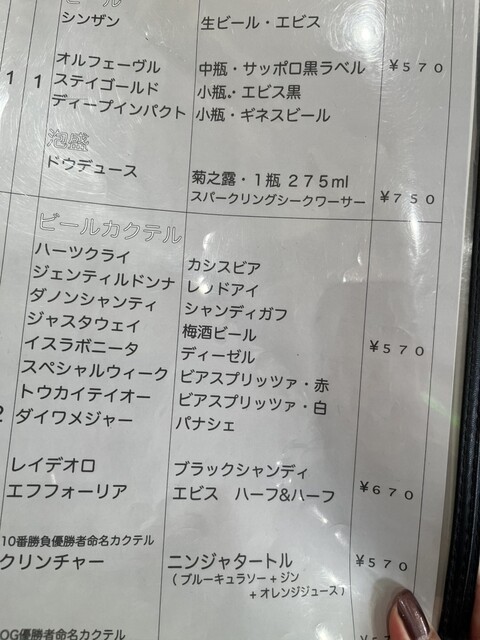 ビール
シンザン 生ビール・エビス
オルフェーヴル 中瓶・サッポロ黒ラベル ¥570
11 ステイゴールド 小瓶・エビス黒
ディープインパクト 小瓶・ギネスビール
泡盛
ドウデュース 菊之露・1瓶 275ml
スパークリングシークワーサー ¥750
ビールカクテル
ハーツクライ カシスビア
ジェンティルドンナ レッドアイ
ダノンシャンティ シャンディガフ
ジャスタウェイ 梅酒ビール
イスラボニータ ディーゼル ¥570
スペシャルウィーク ビアスプリッツァ・赤
トウカイテイオー ビアスプリッツァ・白
2 ダイワメジャー パナシェ
レイデオロ ブラックシャンディ
エフフォーリア エビス ハーフ&ハーフ ¥670
10番勝負優勝者命名カクテル
クリンチャー ニンジャタートル ¥570
(ブルーキュラソー+ジン
+オレンジジュース)
OG優勝者命名カクテル